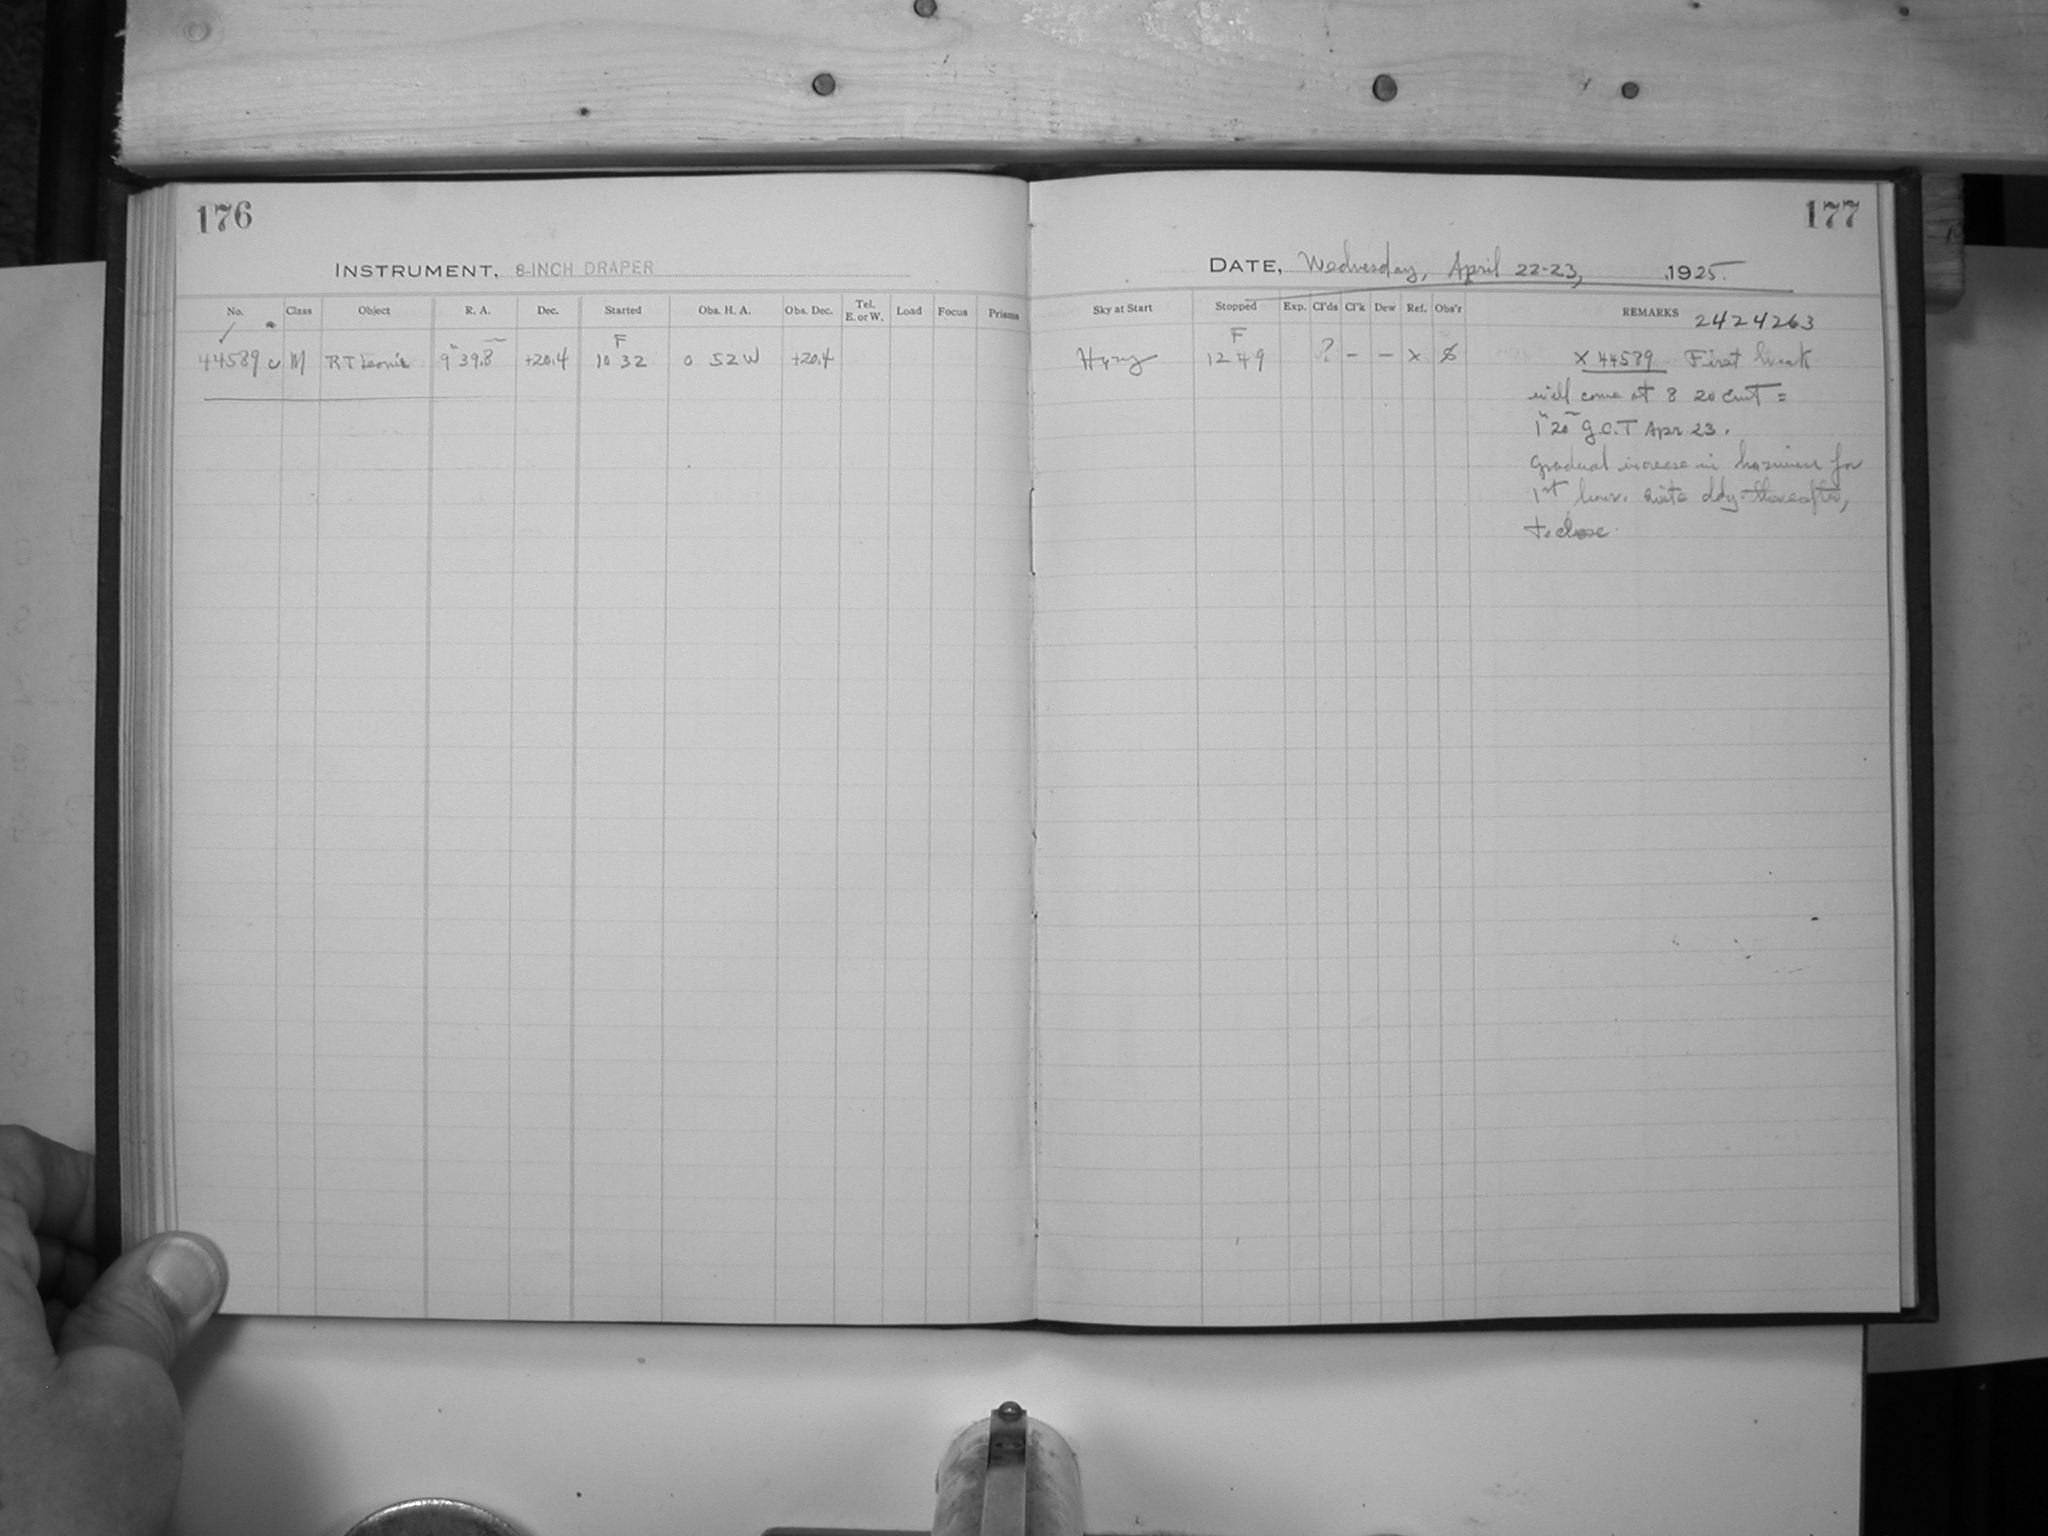 176
INSTRUMENT, 8-INCH DRAPER
No. Class Object R. A. Dec. Started Obs. H. A. Obs. Dec. Tel. E. or W. Load Focus Prisms
F
44589 M RT Leonis 9h 39.8m +20.4 10 32 0 52 W +20.4
177
DATE, Wednesday, April 22-23, 1925.
Sky at Start Stopped Exp. Cl'ds Cl'k Dew Ref. Obs'r REMARKS 2424263
F
Hazy 12 49 ? - - x x 44589 First break
will come at 8 20 =
1h 20m G.C.T Apr. 23.
Gradual increase in haziness for
1st hour. thereafter,
to close.